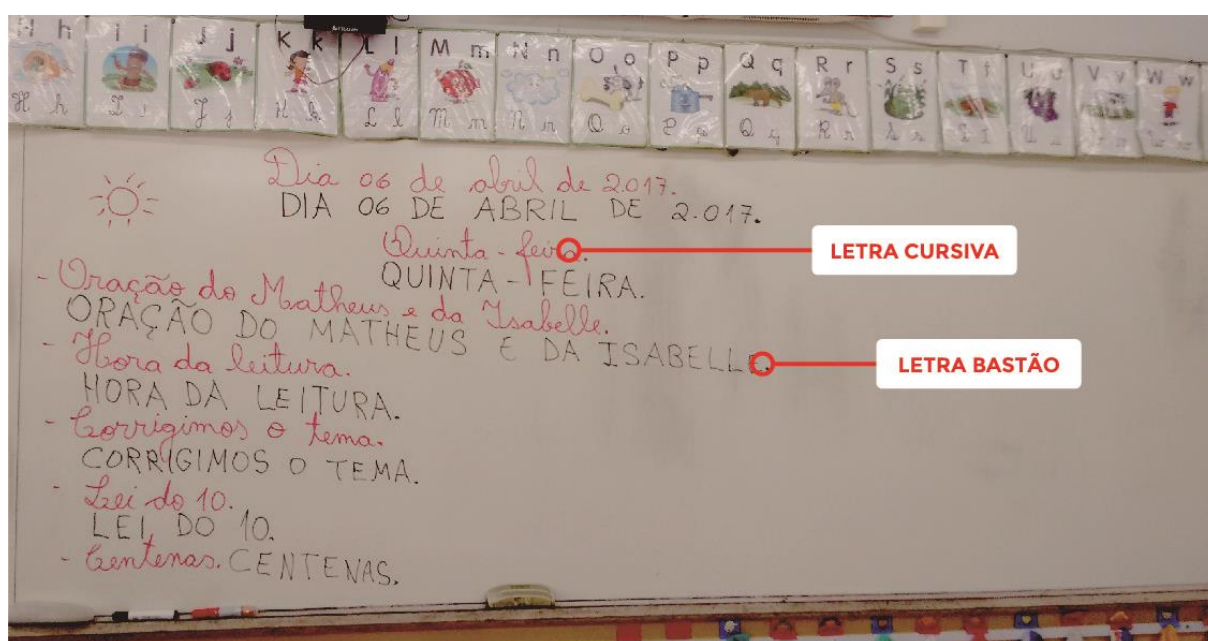 H h I i J j K k L l M m N n O o P p Q q R r S s T t U u V v W w
H h I i J j K k L l M m N n O o P p Q q R r S s T t U u V v W w
Dia 06 de abril de 2.017.
DIA 06 DE ABRIL DE 2.017.
Quinta-feira.
LETRA CURSIVA
QUINTA-FEIRA.
- Oração do Matheus e da Isabelle.
ORAÇÃO DO MATHEUS E DA ISABELLE.
LETRA BASTÃO
- Hora da leitura.
HORA DA LEITURA.
- Corrigimos o tema.
CORRIGIMOS O TEMA.
- Lei do 10.
LEI DO 10.
- Centenas. CENTENAS.